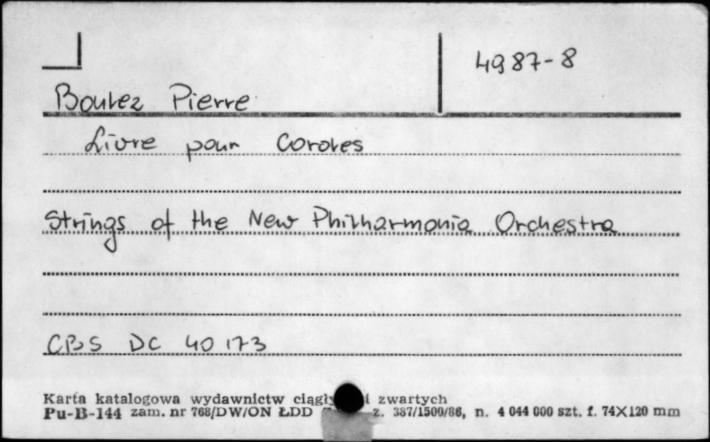 4987-8
Boulez Pierre
Livre pour Cordes
Strings of the New Philharmonia Orchestra
CBS DC 40 173
Karta katalogowa wydawnictw i zwartych
Pu-B-144 zam. nr 768/DW/ON ŁDD z. 387/1500/86, n. 4 044 000 szt. f. 74×120 mm